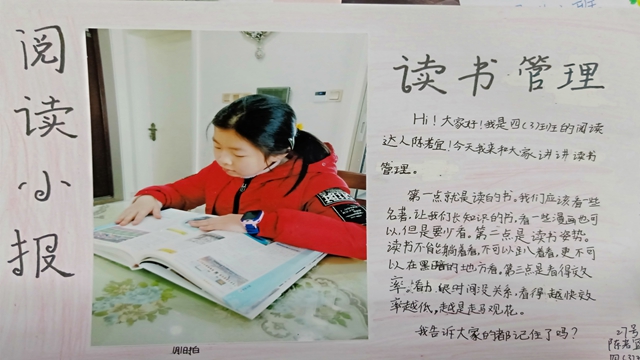 阅读小报
读书管理
Hi！大家好！我是四(3)班的阅读
达人陈 宜！今天我来和大家讲讲读书
管理。
第一点就是读的书。我们应该看一些
名著，让我们长知识的书，看一些漫画也可
以，但是要少看。第二点是读书姿势。
读书不能躺着看，不可以趴着看，更不可
以在黑暗的地方看。第三点是看得效
率。看 时间没关系，看得越快效
率越低，越是走马观花。
我告诉大家的都记住了吗？
27号
陈 宜